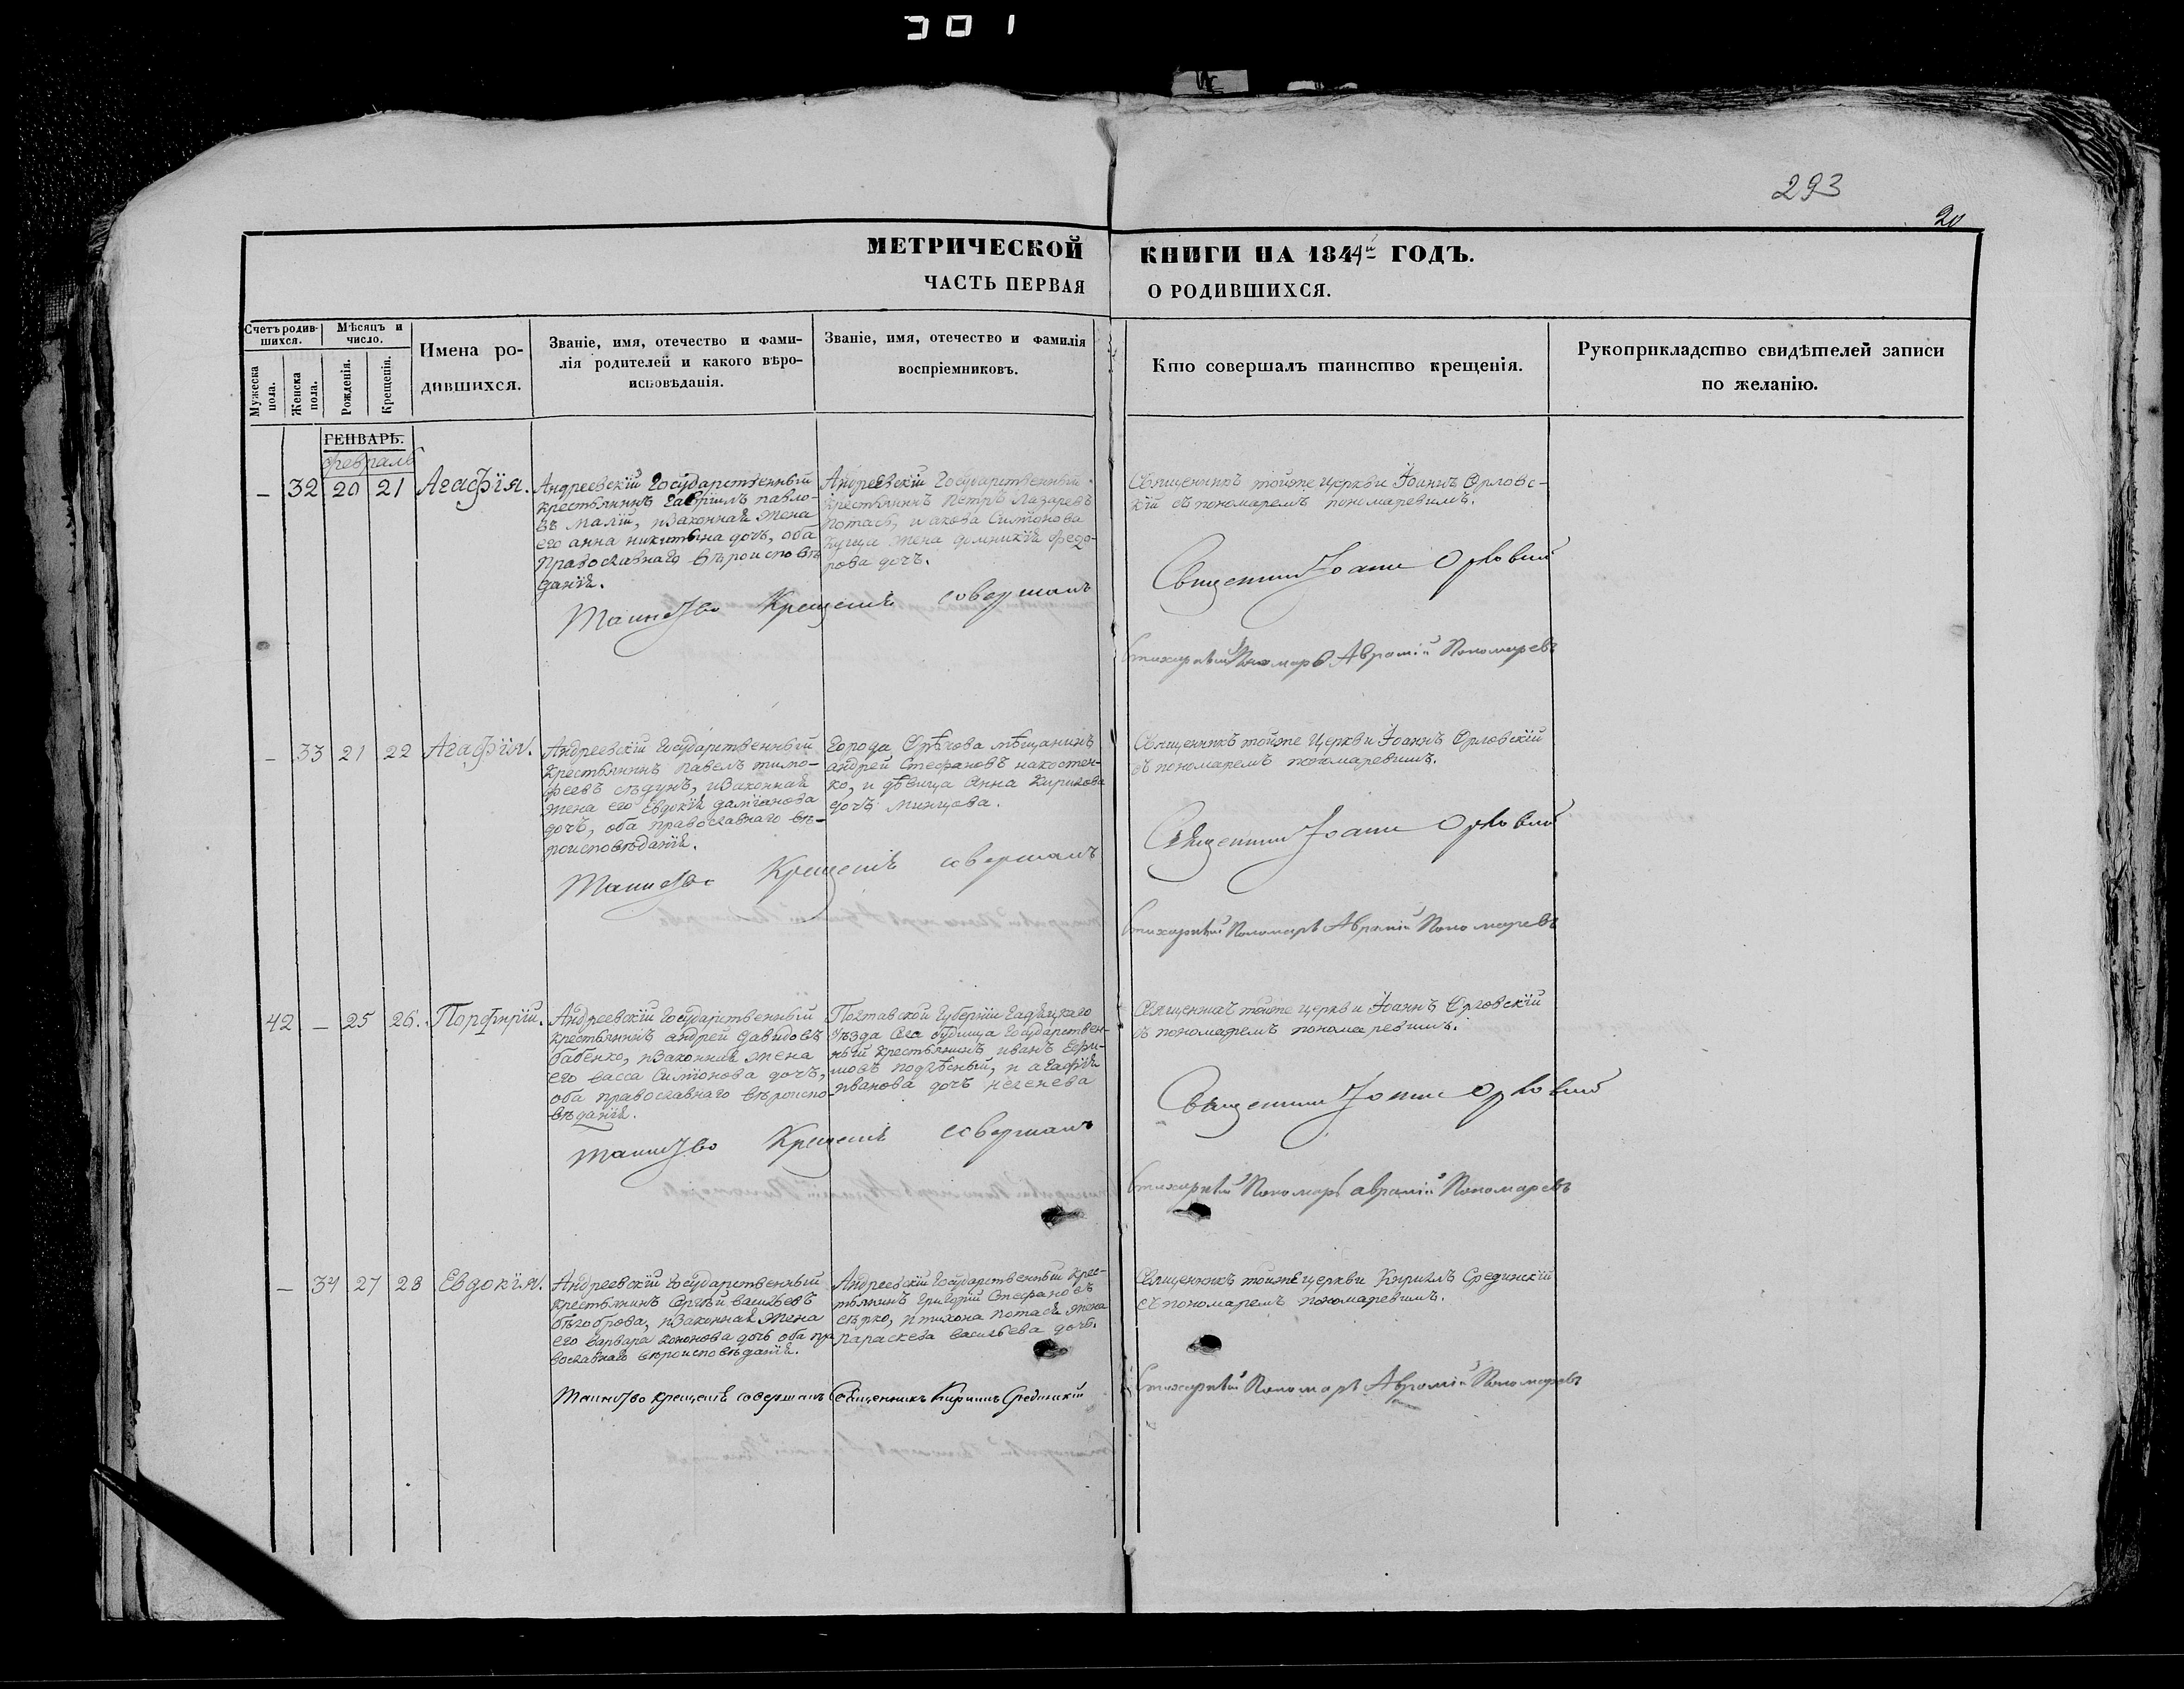 301
293
20
МЕТРИЧЕСКОЙ КНИГИ НА 1844й ГОДЪ.
ЧАСТЬ ПЕРВАЯ О РОДИВШИХСЯ.
Счетъ родив-
шихся.
Мужеска
пола.
Женска
пола.
Мѣсяцъ и
число.
Рожденія.
Крещенія.
Имена ро-
дившихся.
Званіе, имя, отечество и фами-
лія родителей и какого вѣро-
исповѣданія.
Званіе, имя, отечество и фамилія
воспріемниковъ.
Кто совершалъ таинство крещенія.
Рукоприкладство свидѣтелей записи
по желанію.
ГЕНВАРЬ.
февраль
– 32 20 21 Агафія.
Андреевскій Государственный
крестьянинъ Гавріилъ павло-
въ малій, изаконная жена
его анна никитина дочь, оба
Православнаго вѣроисповѣ
данія.
Андреевскій Государственный
крестьянинъ Петръ Лазаревъ
потась, и акова Симіонова
Куща жена домникія федо-
рова дочь.
Священникъ тойже церкви Іоаннъ Орловс-
кій съ пономаремъ пономаревимъ.
Таинство Крещенія совершалъ Священникъ Іоаннъ Орловскій
Стихарный Пономарь Аврамій Пономаревъ
– 33 21 22 Агафія.
Андреевскій Государственный
крестьянинъ павелъ тимо-
феевъ слѣдунъ, изаконная
жена его Евдокія даміанова
дочь, оба православнаго вѣ-
роисповѣданія.
Города Орѣхова мѣщанинъ
андрей Стефановъ накостен-
ко, и дѣвица Анна Кирилова
дочь минцова.
Священникъ тойже Церкви Іоаннъ Орловскій
съ пономаремъ пономаревимъ.
Таинство Крещенія совершалъ Священникъ Іоаннъ Орловскій
Стихарный Пономарь Аврамій Пономаревъ
42 – 25 26. Порфирій.
Андреевскій Государственный
крестьянинъ андрей давидовъ
бабенко, изаконная жена
его васса Симіонова дочь,
оба православнаго вѣроиспо-
вѣданія.
Полтавской Губерніи Гадяцкаго
Уѣзда Села будища Государствен-
ный крестьянинъ иванъ
подлѣсный, и агафія
иванова дочь
Священникъ тойже церкви Іоаннъ Орловскій
съ пономаремъ пономаревимъ.
Таинство Крещенія совершалъ Священникъ Іоаннъ Орловскій
Стихарный Пономарь аврамій Пономаревъ
– 34 27 28 Евдокія.
Андреевскій Государственный
крестьянинъ Сергѣй васильевъ
бѣлоброва, изаконная жена
его варвара кононова дочь оба пра
вославнаго вѣроисповѣданія.
Андреевскій Государственный крес-
тьянинъ григорій Стефановъ
сѣрко, и тихона потася жена
параскева васильева дочь.
Священникъ тойже церкви Кирилъ Срединскій
съ пономаремъ пономаревимъ.
Таинство крещенія совершалъ Священникъ Кирилъ Срединскій
Стихарный Пономарь Аврамій Пономаревъ